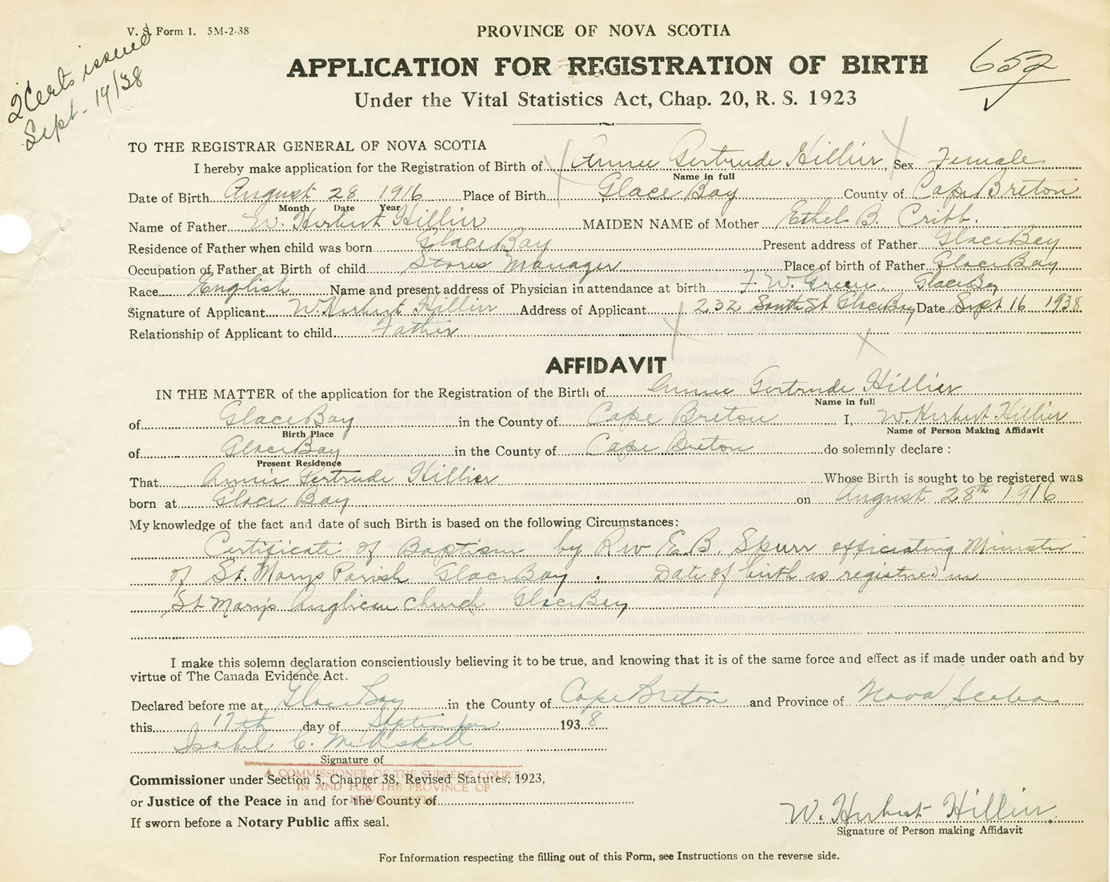 V. S. Form 1. 5M-2-38
2 Certs issued
Sept. 19/38
PROVINCE OF NOVA SCOTIA
APPLICATION FOR REGISTRATION OF BIRTH
652
Under the Vital Statistics Act, Chap. 20, R. S. 1923
TO THE REGISTRAR GENERAL OF NOVA SCOTIA
I hereby make application for the Registration of Birth of Annie Gertrude Hillier, Sex Female
Name in full
Date of Birth August 28 1916 Place of Birth Glace Bay County of Cape Breton
Month Date Year
Name of Father W. Herbert Hillier MAIDEN NAME of Mother Ethel B. Cribb.
Residence of Father when child was born Glace Bay Present address of Father Glace Bay
Occupation of Father at Birth of child Stores Manager Place of birth of Father Glace Bay
Race English Name and present address of Physician in attendance at birth F. W. Green. Glace Bay
Signature of Applicant W. Herbert Hillier Address of Applicant 232 South St Glace Bay Date Sept 16 1938
Relationship of Applicant to child Father
AFFIDAVIT
IN THE MATTER of the application for the Registration of the Birth of Annie Gertrude Hillier
Name in full
of Glace Bay in the County of Cape Breton I, W. Herbert Hillier
Birth Place Name of Person Making Affidavit
of Glace Bay in the County of Cape Breton do solemnly declare :
Present Residence
That Annie Gertrude Hillier Whose Birth is sought to be registered was
born at Glace Bay on August 28th 1916
My knowledge of the fact and date of such Birth is based on the following Circumstances:
Certificate of Baptism by Rev E. B. Spurr officiating Minister
of St. Marys Parish Glace Bay. Date of birth is registered in
St Mary's Anglican Church Glace Bay
I make this solemn declaration conscientiously believing it to be true, and knowing that it is of the same force and effect as if made under oath and by
virtue of The Canada Evidence Act.
Declared before me at Glace Bay in the County of Cape Breton and Province of Nova Scotia
this 17th day of September 1938
Isabel C. McAskill
Signature of
A COMMISSIONER OF THE SUPREME COURT
IN AND FOR THE PROVINCE OF
NOVA
Commissioner under Section 5, Chapter 38, Revised Statutes, 1923,
or Justice of the Peace in and for the County of
If sworn before a Notary Public affix seal.
W. Herbert Hillier.
Signature of Person making Affidavit
For Information respecting the filling out of this Form, see Instructions on the reverse side.